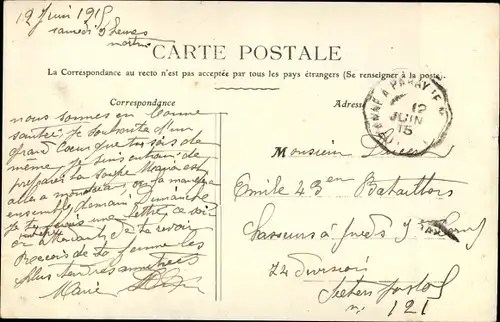 12 Juin 1915
samedi 5 heures
matin
CARTE POSTALE
La Correspondance au recto n'est pas acceptée par tous les pays étrangers (Se renseigner à la poste).
Correspondance
Adresse
A PARAY LE
12
JUIN
15
nous sommes en bonne
santée, je souhaite d'un
grand Cœur que tu sois de
même, je suis entrain de
preparer la soupe Maria est
allée a
ensemble demain Dimanche
je te ferais une lettre ce soir
en attendant de te revoir
Reçois de ta femme les
plus tendres amitiées
Marie
Monsieur
Emile 43 en Bataillon
Chasseurs à pieds
74 division
Secteur postal
n. 121